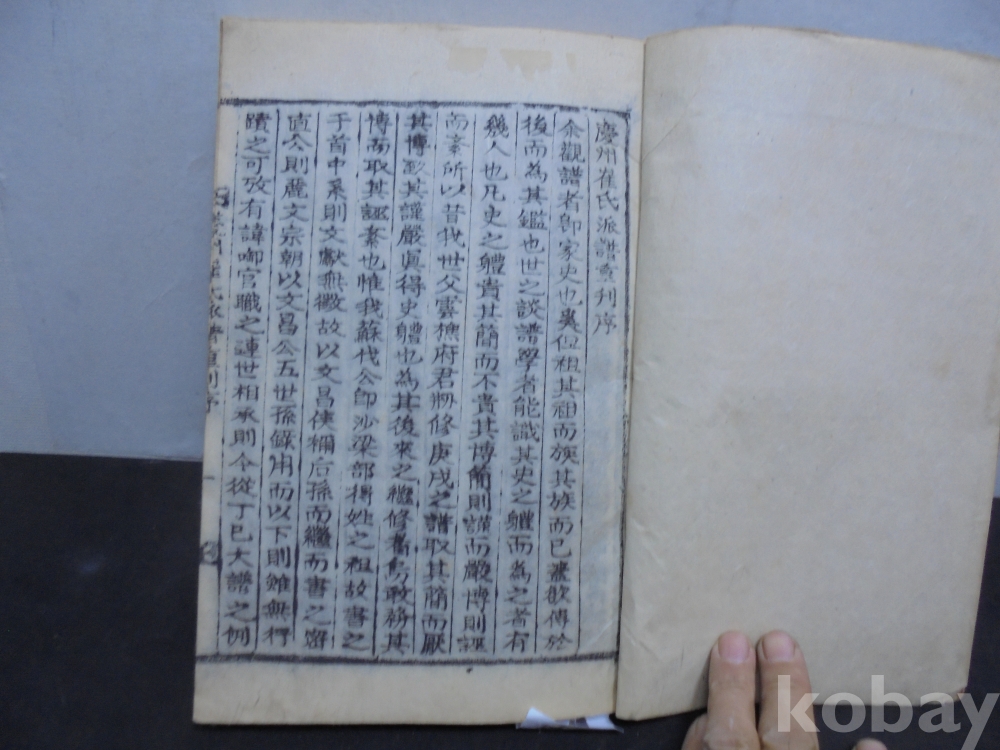 慶州崔氏派譜重刊序
余觀譜者卽家史也奚但祖其祖而族其族而已盖欲傳於
後而為其鑑也世之談譜學者能識其史之軆而為之者有
幾人也凡史之軆貴其簡而不貴其博簡則謹而嚴博則誣
而紊所以昔我世父雲樵府君所修庚戌之譜取其簡而厭
其博致其謹嚴眞得史軆也為其後來之繼修者烏敢務其
博而取其誣紊也惟我蘇伐公卽沙梁部得姓之祖故書之
于首中系則文獻無徵故以文昌侯稱后孫而繼而書之密
直公則麗文宗朝以文昌公五世孫錄用而以下則雖無行
蹟之可攷有諱啣官職之連世相承則今從丁巳大譜之例
慶州崔氏派譜重刊序
一
kobay